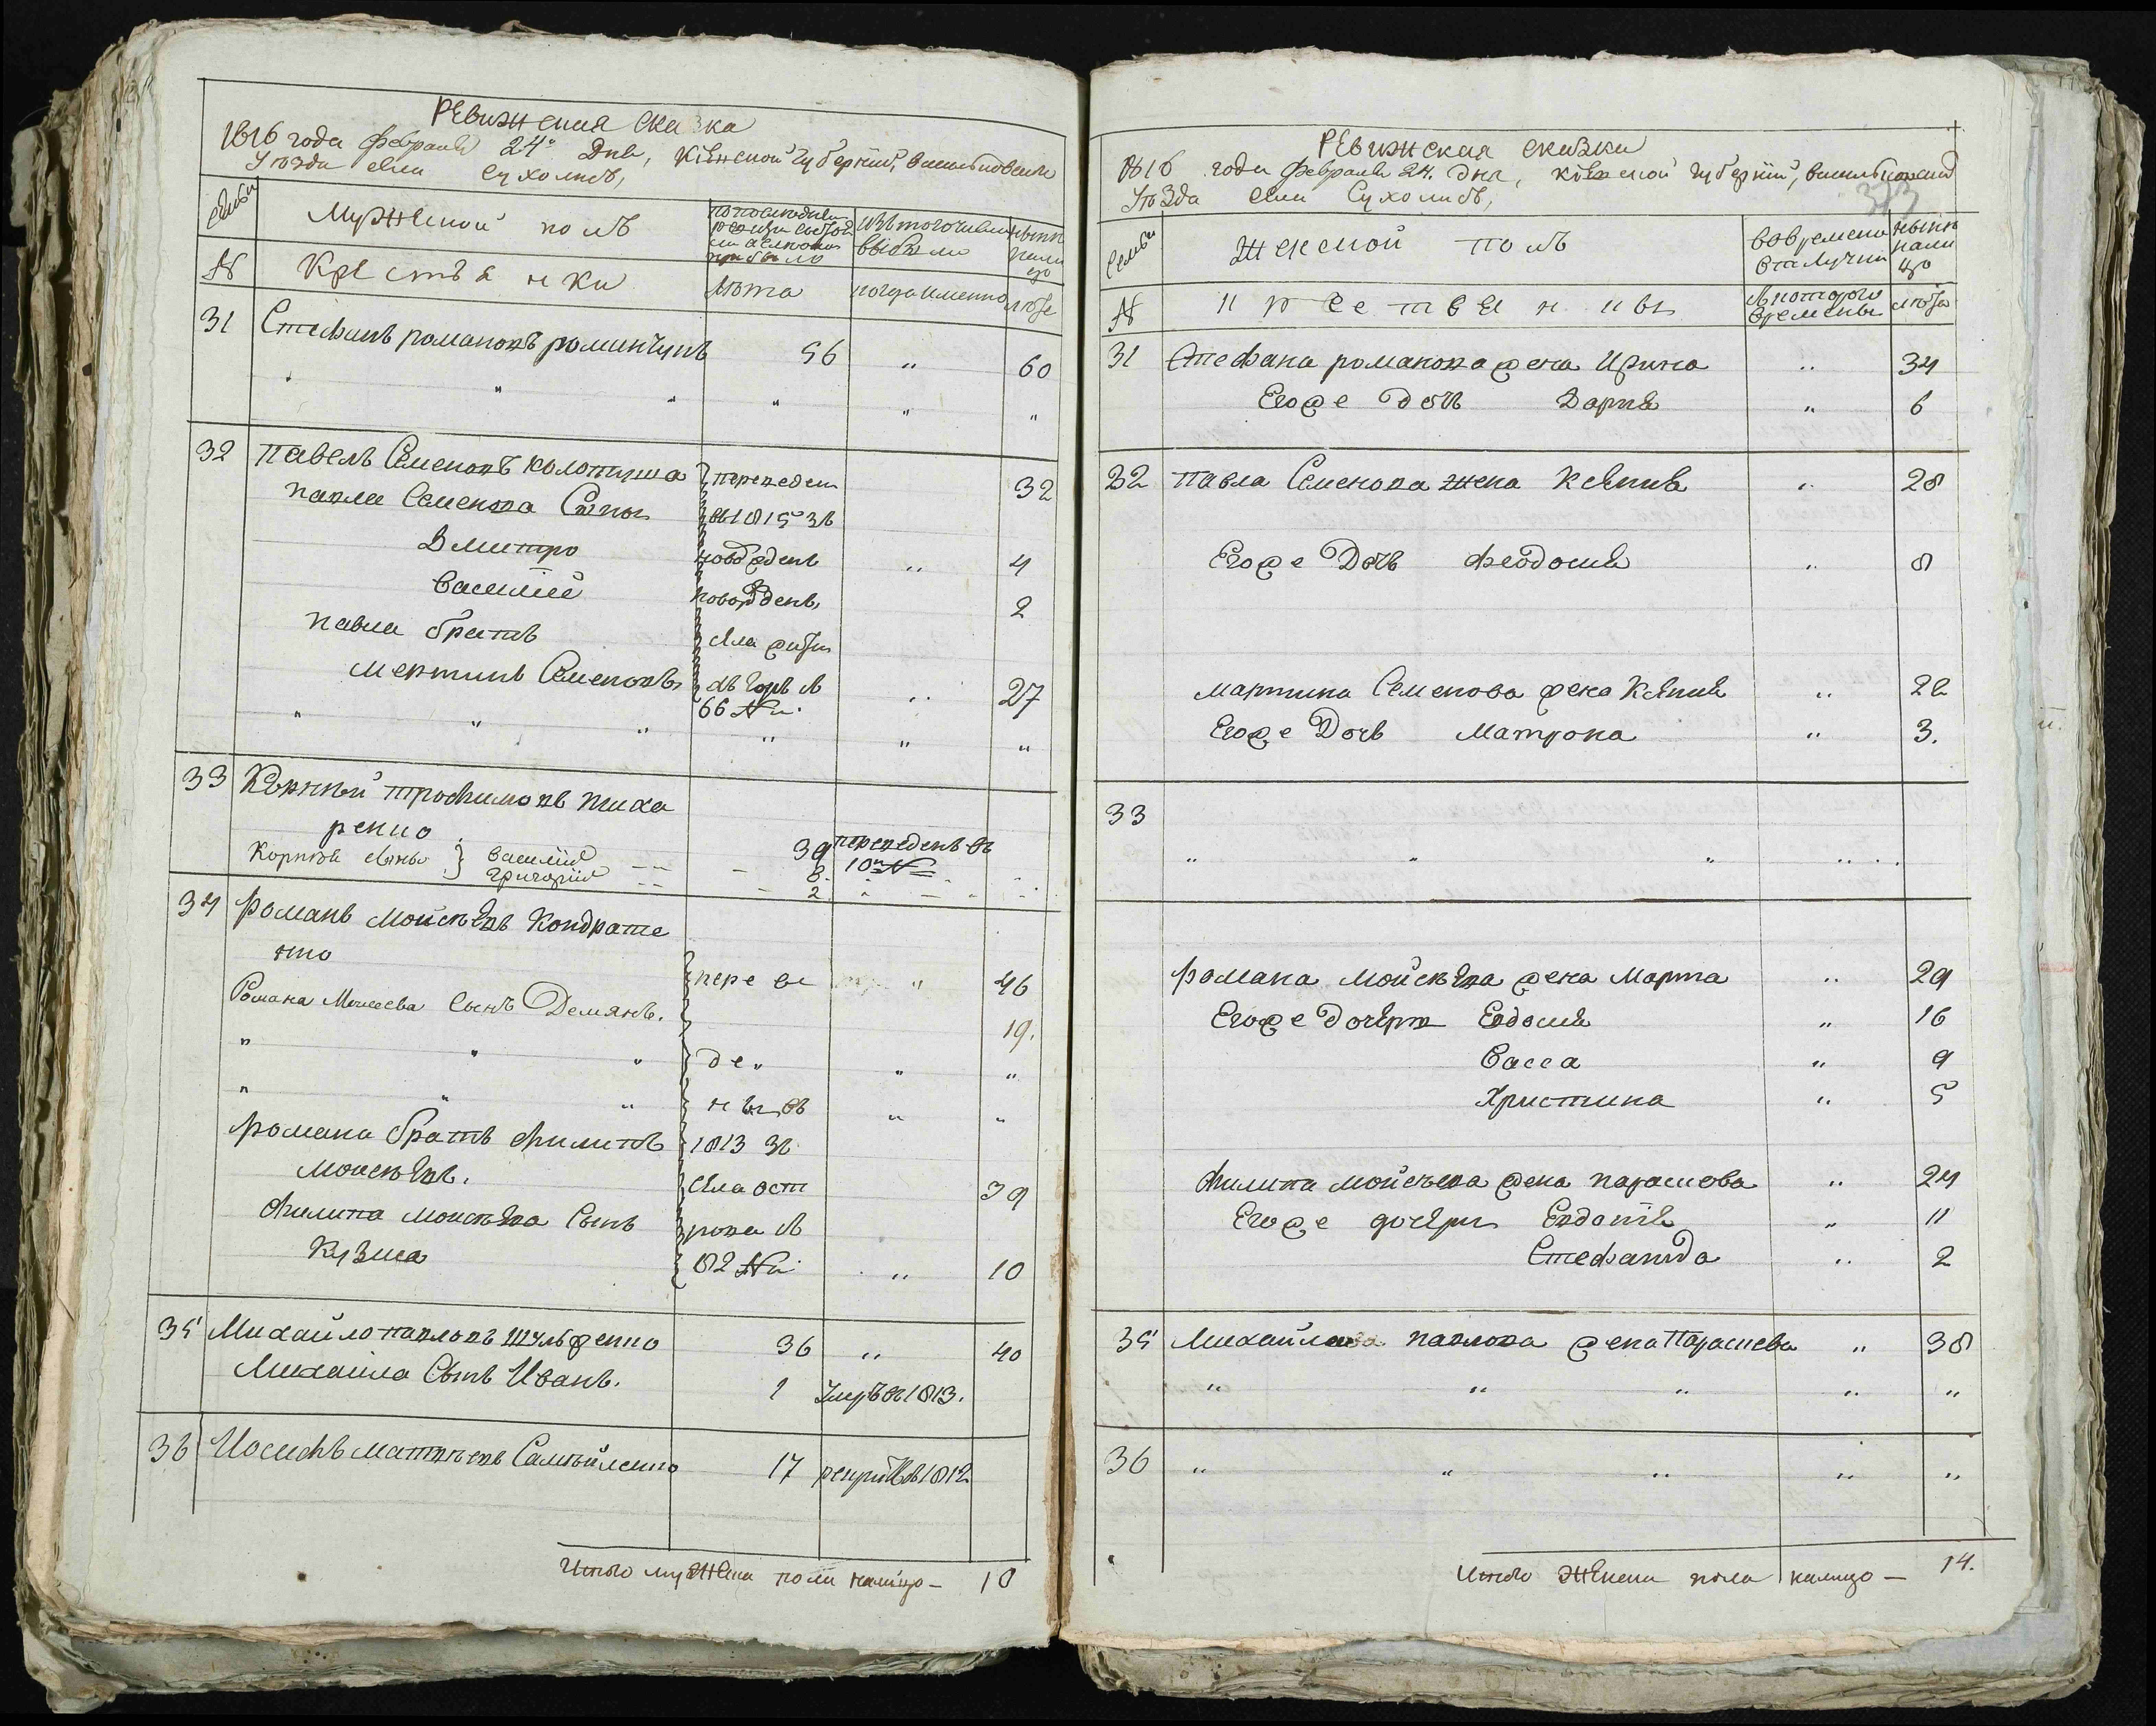 Ревижская сказка
1816 года Февраля 24го Дня, Кіевской губерніи, Васильковскаго
Уѣзда села Сухолисъ,
Семьи
Мужеской полъ
по последней ревизіи состояло и после оной прибыло
изъ того числа выбыло
ныне налицо
№
Крестьянки
Лѣта
когда именно
лѣта
31 Стефанъ романовъ романчукъ 56 " 60
" " " " " "
32 павелъ Семеновъ колотуша переведен 32
павла Семенова Сыны въ 1815 зъ
Дмитро новорожденъ " 4
Василій новорожденъ 2
павла братъ села
Мартинъ Семеновъ " 27
66 №
" " " " " "
33 Корній трофимовъ тиха
ренко 39 переведенъ въ
Корнія сыны } Василій — — 8. 10й №
Григорій — — 2
34 романъ Мойсѣевъ Кондрате
нко
пере ве " 46
Романа Моисеева Сынъ Демянъ. 19.
" " " де " "
" " " ны въ " "
романа братъ филипъ 1813 зъ
Мойсѣевъ. села ост 39
филипа мойсѣева Сынъ рова №
Кузма 82 № " 10
35 Михайло павловъ шульженко 36 " 40
Михаила Сынъ Иванъ. 1 Умръ въ 1813.
36 Иосифъ матвѣевъ Самойленко 17 рекрутъ въ 1812
Итого мужеска пола налицо — 10
Ревижская сказка
1816 года Февраля 24. дня, Кіевской губерніи, Васильковской
Уѣзда села Сухолисъ,
323
Семьи
Женской полъ
во временной отлучки
ныне налицо
№
крестьянкы
съ которого времены
лѣта
31 Стефана романова жена Ирина " 34
Егоже дочь Дарія " 6
32 павла Семенова жена Ксенія " 28
Егоже Дочь Феодосія " 8
мартина Семенова жена Ксенія " 22
Егоже Дочь Матрона " 3.
33
" " " " "
романа мойсѣева жена Марта " 29
Егоже дочери Евдокія " 16
Васса " 9
Христина " 5
филипа мойсѣева жена параскова " 24
Егоже дочери Евдокія " 11
Стефанида " 2
35 Михайла павлова жена Параскева " 38
" " " " "
36 " " " " "
Итого Женска пола налицо — 14.